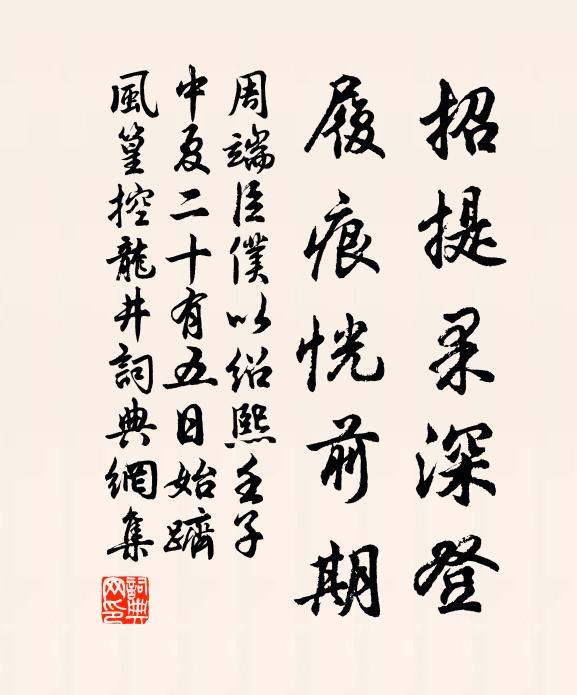 招提罙深登
履痕恍前期
周端臣僕以紹熙壬子
中夏二十有五日始躋
風篁控龍井詞典網集
詞典網印